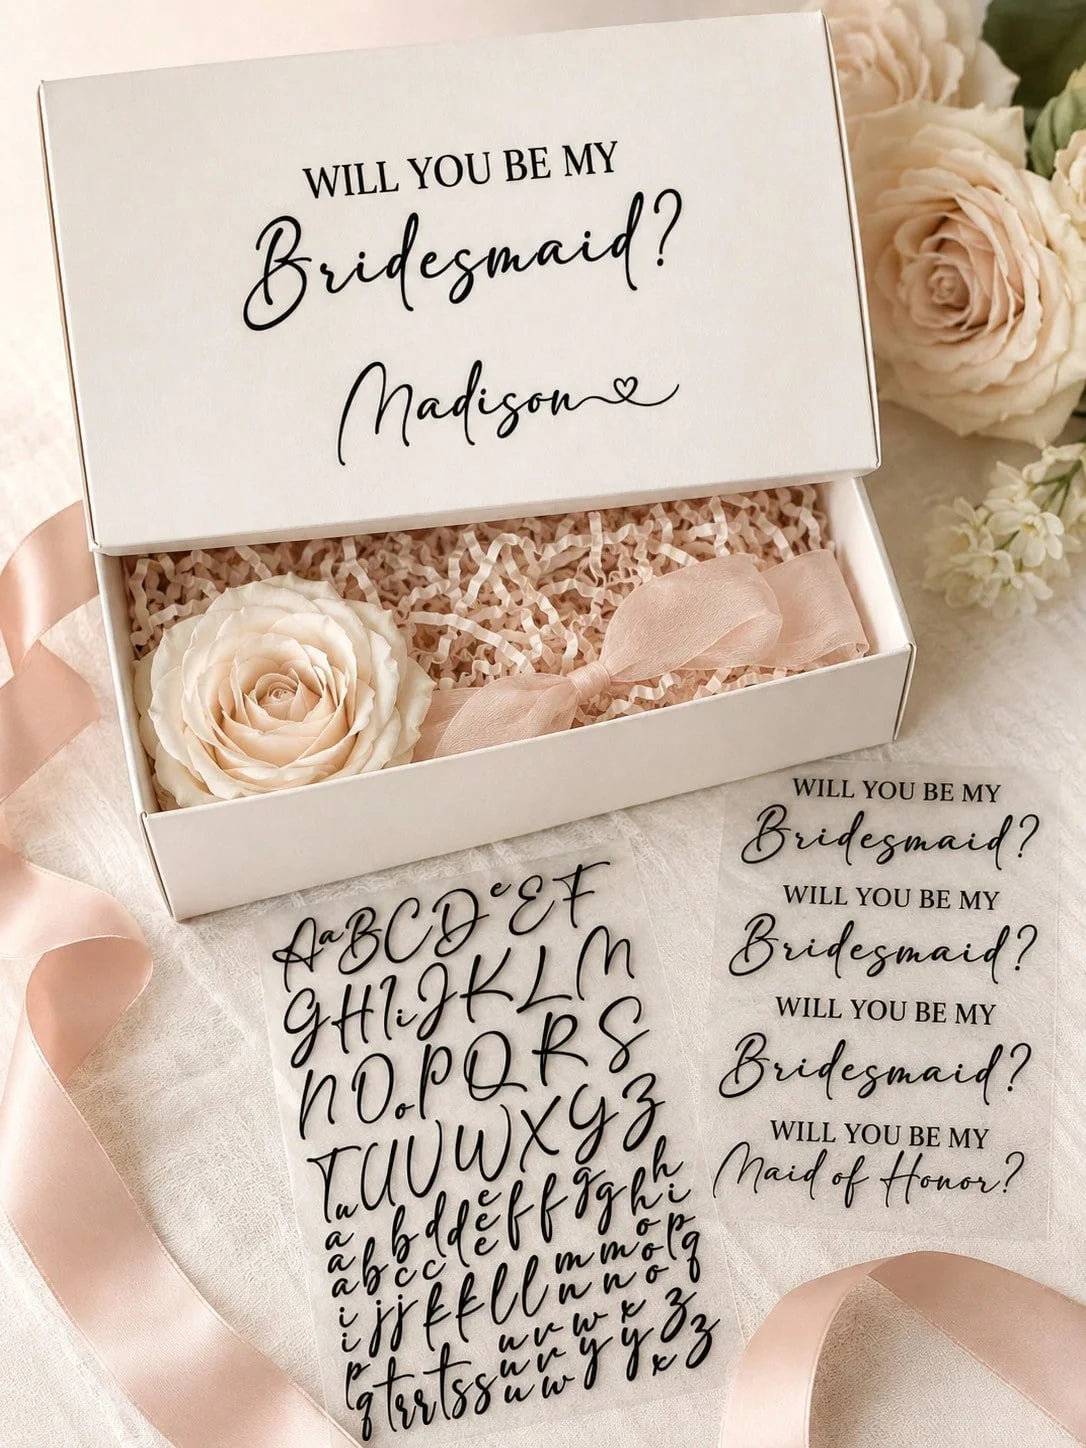 WILL YOU BE MY
Bridesmaid?
Madison
AaBCDeEF
GHIiJKLM
NOoPQRS
TuUVWXYZ
WILL YOU BE MY
Bridesmaid?
WILL YOU BE MY
Bridesmaid?
WILL YOU BE MY
Bridesmaid?
WILL YOU BE MY
Maid of Honor?